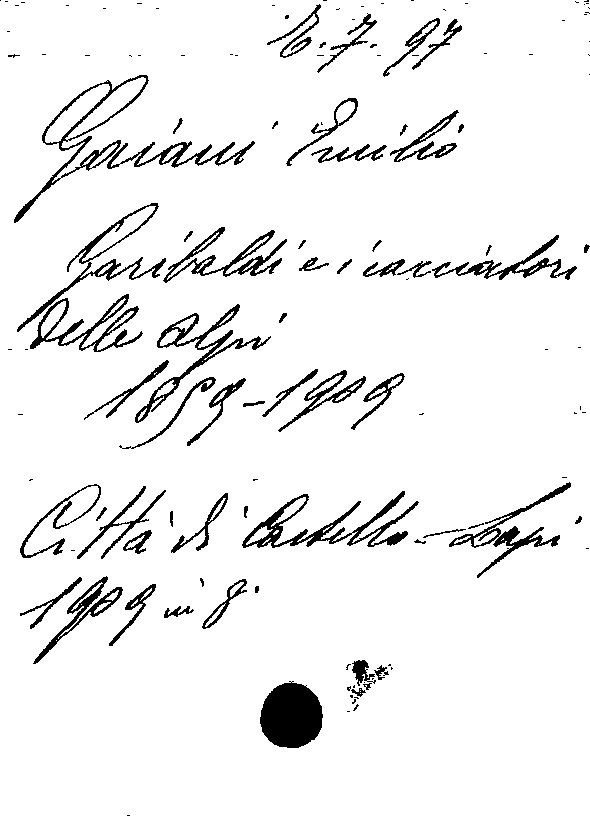 E. 7. 97
Gaiani Emilio
Garibaldi e i cacciatori
delle Alpi
1859-1909
Città di Castello - Lapi
1909 in 8.